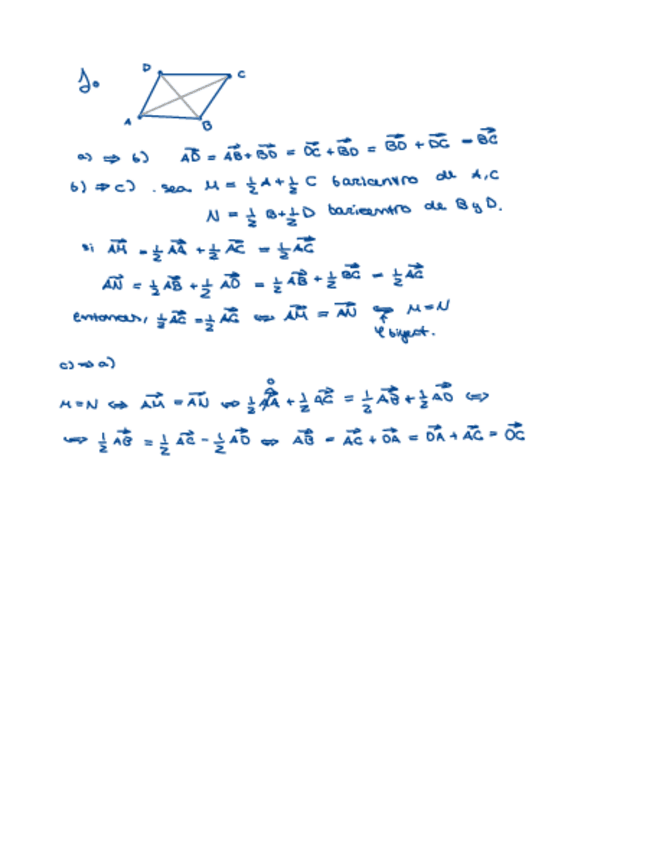 1.
D C
A B
a) ⇒ b) AD⃗ = AB⃗ + BD⃗ = DC⃗ + BD⃗ = BD⃗ + DC⃗ = BC⃗
b) ⇒ c) . sea M = 1/2 A + 1/2 C baricentro de A, C
N = 1/2 B + 1/2 D baricentro de B y D.
si AM⃗ = 1/2 AA⃗ + 1/2 AC⃗ = 1/2 AC⃗
AN⃗ = 1/2 AB⃗ + 1/2 AD⃗ = 1/2 AB⃗ + 1/2 BC⃗ = 1/2 AC⃗
entonces, 1/2 AC⃗ = 1/2 AC⃗ ⇔ AM⃗ = AN⃗ ⇔ M = N
φ biject.
c) ⇒ a)
0
M = N ⇔ AM⃗ = AN⃗ ⇔ 1/2 AA⃗ + 1/2 AC⃗ = 1/2 AB⃗ + 1/2 AD⃗ ⇔
⇔ 1/2 AB⃗ = 1/2 AC⃗ - 1/2 AD⃗ ⇔ AB⃗ = AC⃗ + DA⃗ = DA⃗ + AC⃗ = DC⃗